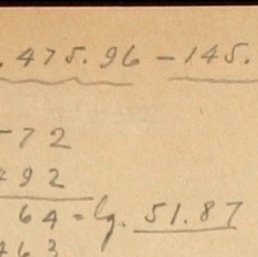 . 475.96 - 145.
- 7 2
4 9 2
6 4 = lg. 51.87
4 6 3